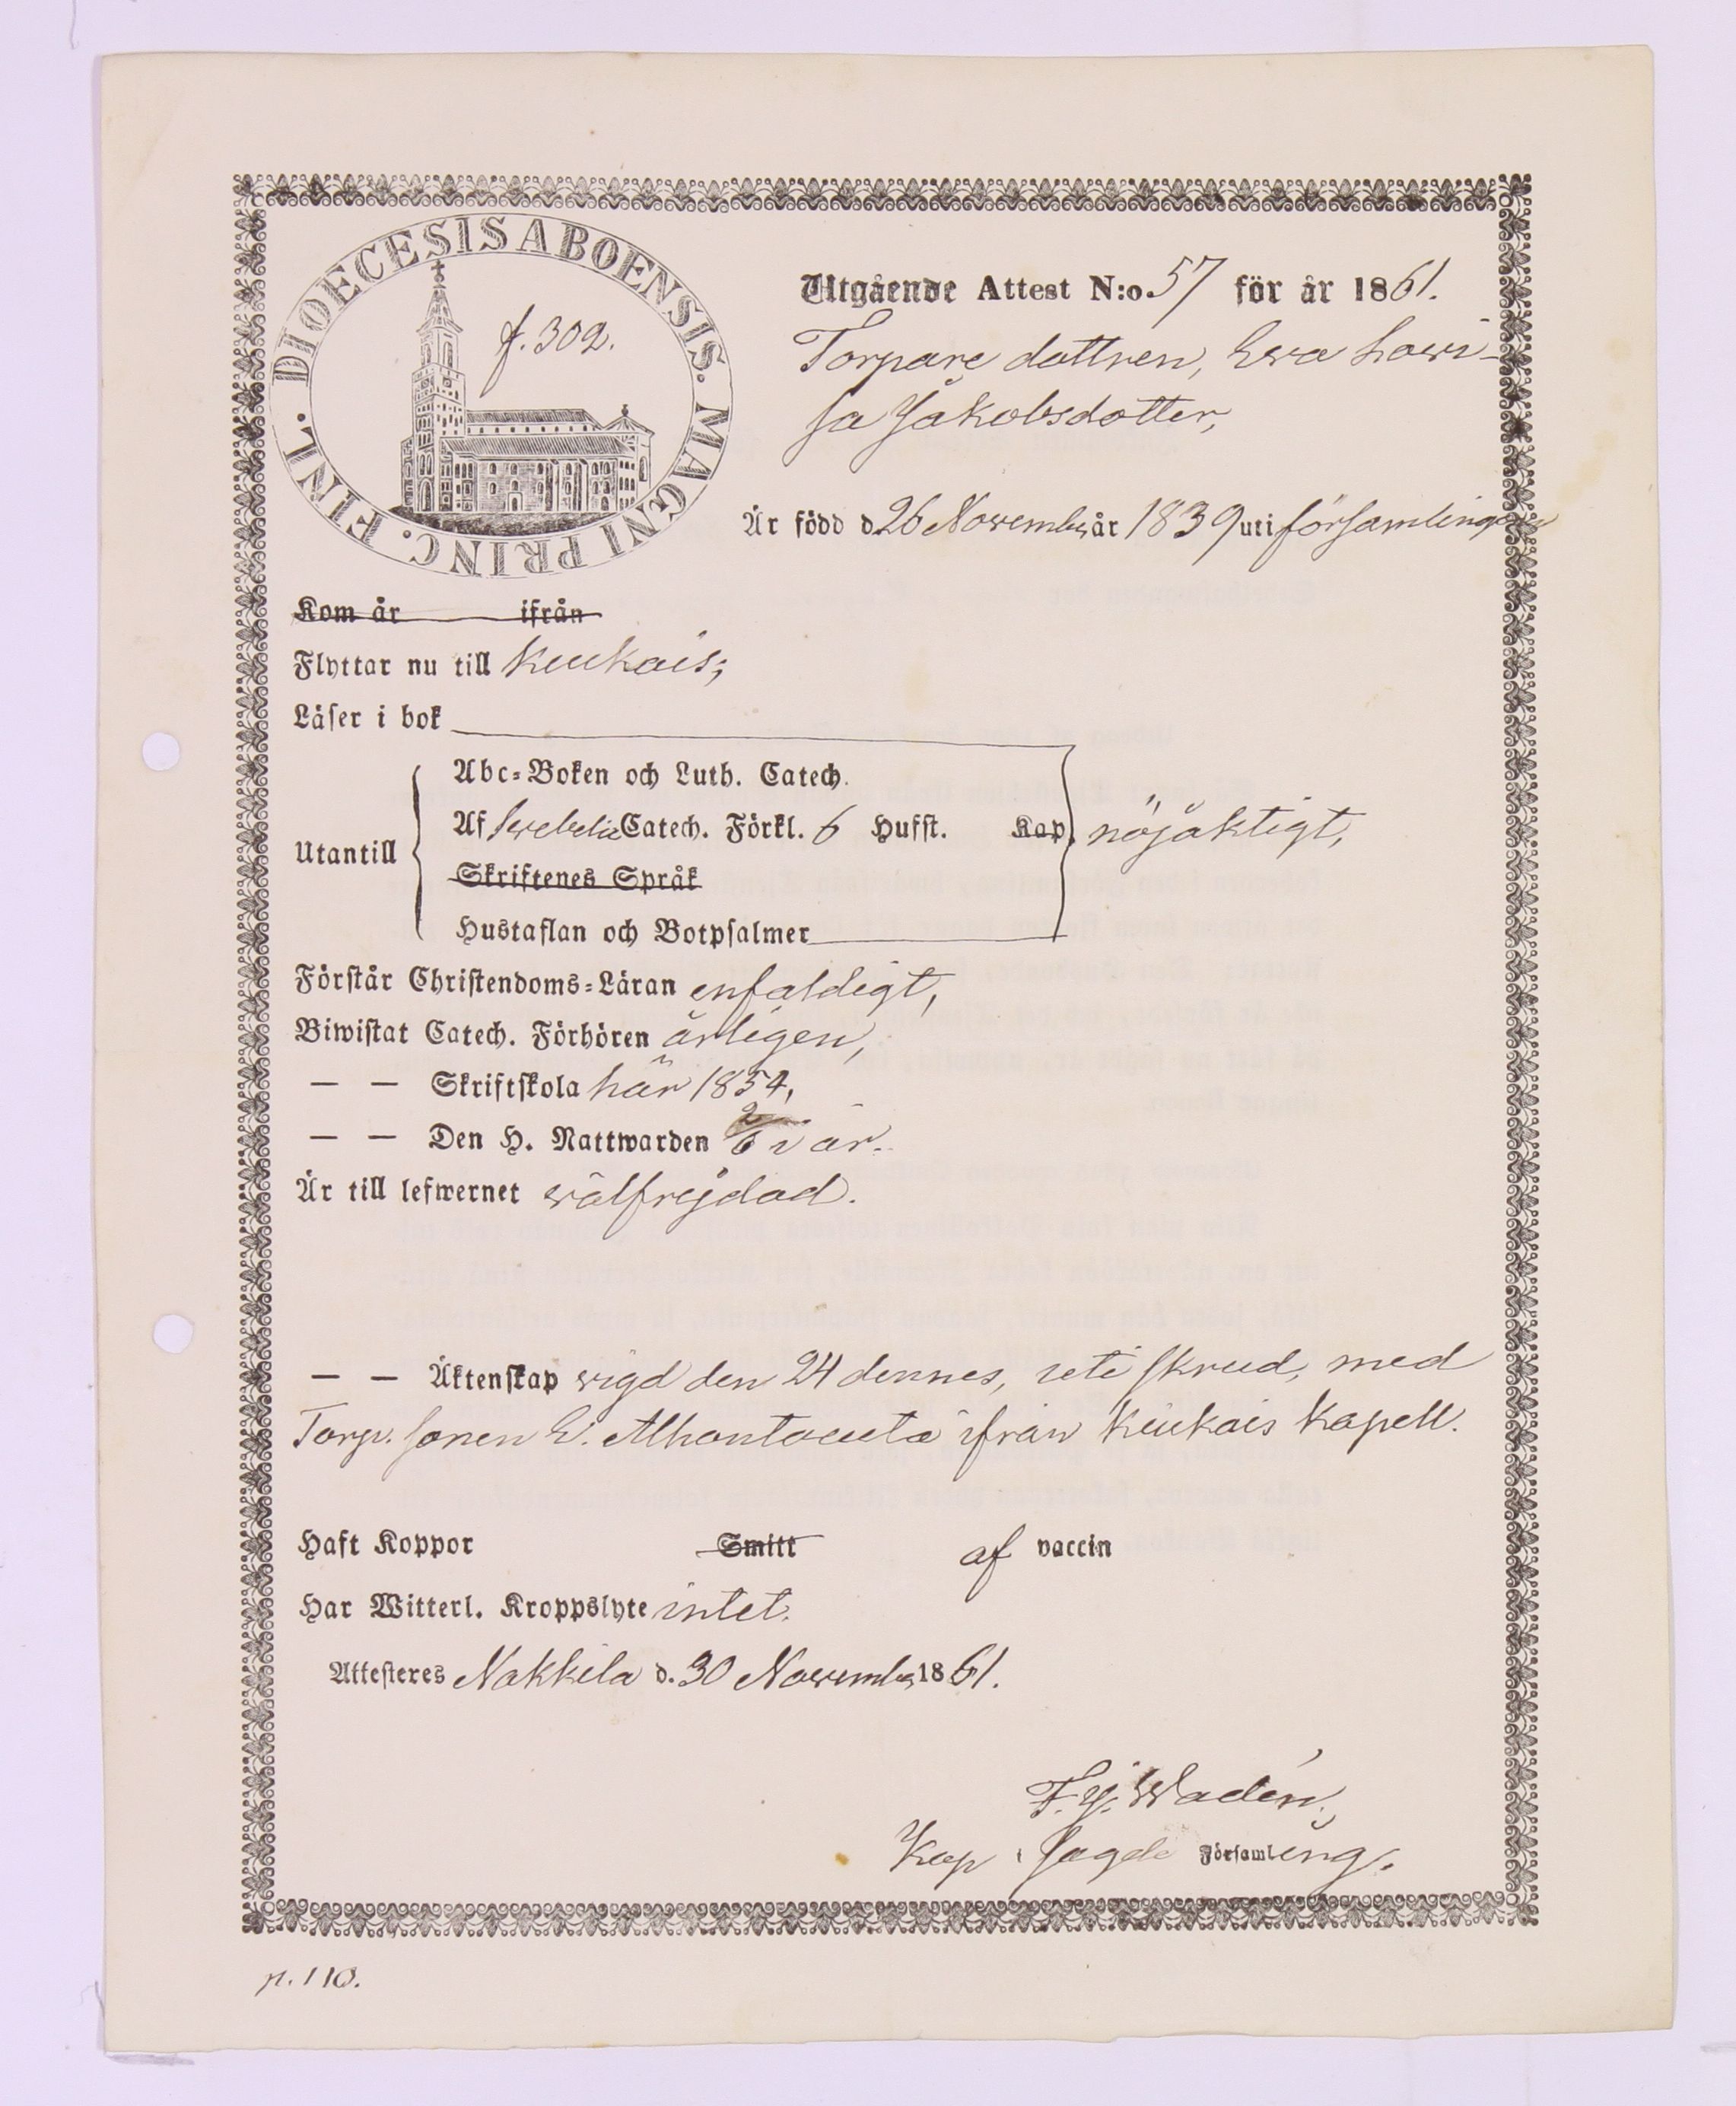 DIOECESIS ABOENSIS. MAGNI PRINC. FINL.
f. 302.
Utgående Attest N:o 57 för år 1861.
Torpare dottren, Ewa Lowi-
sa Jakobsdotter,
Är född d. 26 Novembr år 1839 uti församlingen
Kom år ifrån
Flyttar nu till Kiukais;
Läser i bok
Utantill
Abc-Boken och Luth. Catech.
Af Swebelii Catech. Förkl. 6 Hufst. Kap. nöjaktigt,
Skriftenes Språk
Hustaflan och Botpsalmer
Förstår Christendoms-Läran enfaldigt,
Biwistat Catech. Förhören årligen,
— — Skriftskola här 1854,
— — Den H. Nattwarden 2/6 i år.
Är till lefwernet wälfrejdad.
— — Äktenskap wigd den 24 dennes, uti skrud, med
Torp. sonen E. Alhontausta ifrån Kiukais Kapell.
Haft Koppor Smitt af vaccin
Har Witterl. Kroppslyte intet.
Attesteres Nakkila d. 30 Novembr 1861.
F. J. Wadén,
Kap. i sagde Församling.
p. 110.